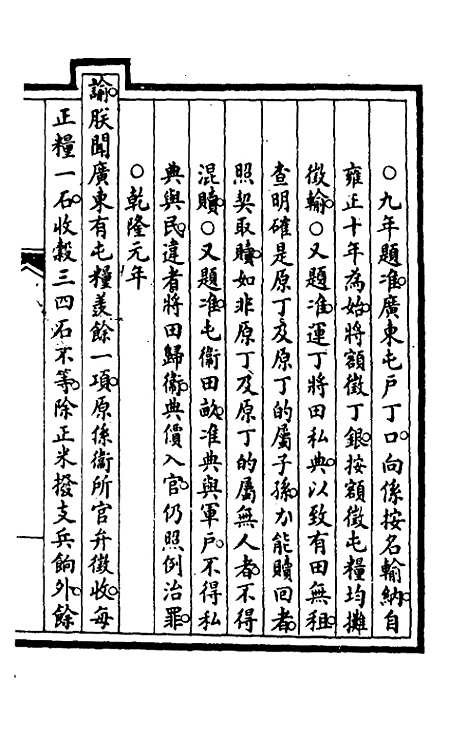 ○九年題准廣東屯戶丁口向係按名輸納自
雍正十年為始將額徵丁銀按額徵屯糧均攤
徵輸○又題准運丁將田私典以致有田無租
查明確是原丁及原丁的屬子孫力能贖回者
照契取贖如非原丁及原丁的屬無人者不得
混贖○又題准屯衛田畝准典與軍戶不得私
典與民違者將田歸衛典價入官仍照例治罪
○乾隆元年
諭朕聞廣東有屯糧羨餘一項原係衛所官弁徵收每
正糧一石收穀三四石不等除正米撥支兵餉外餘